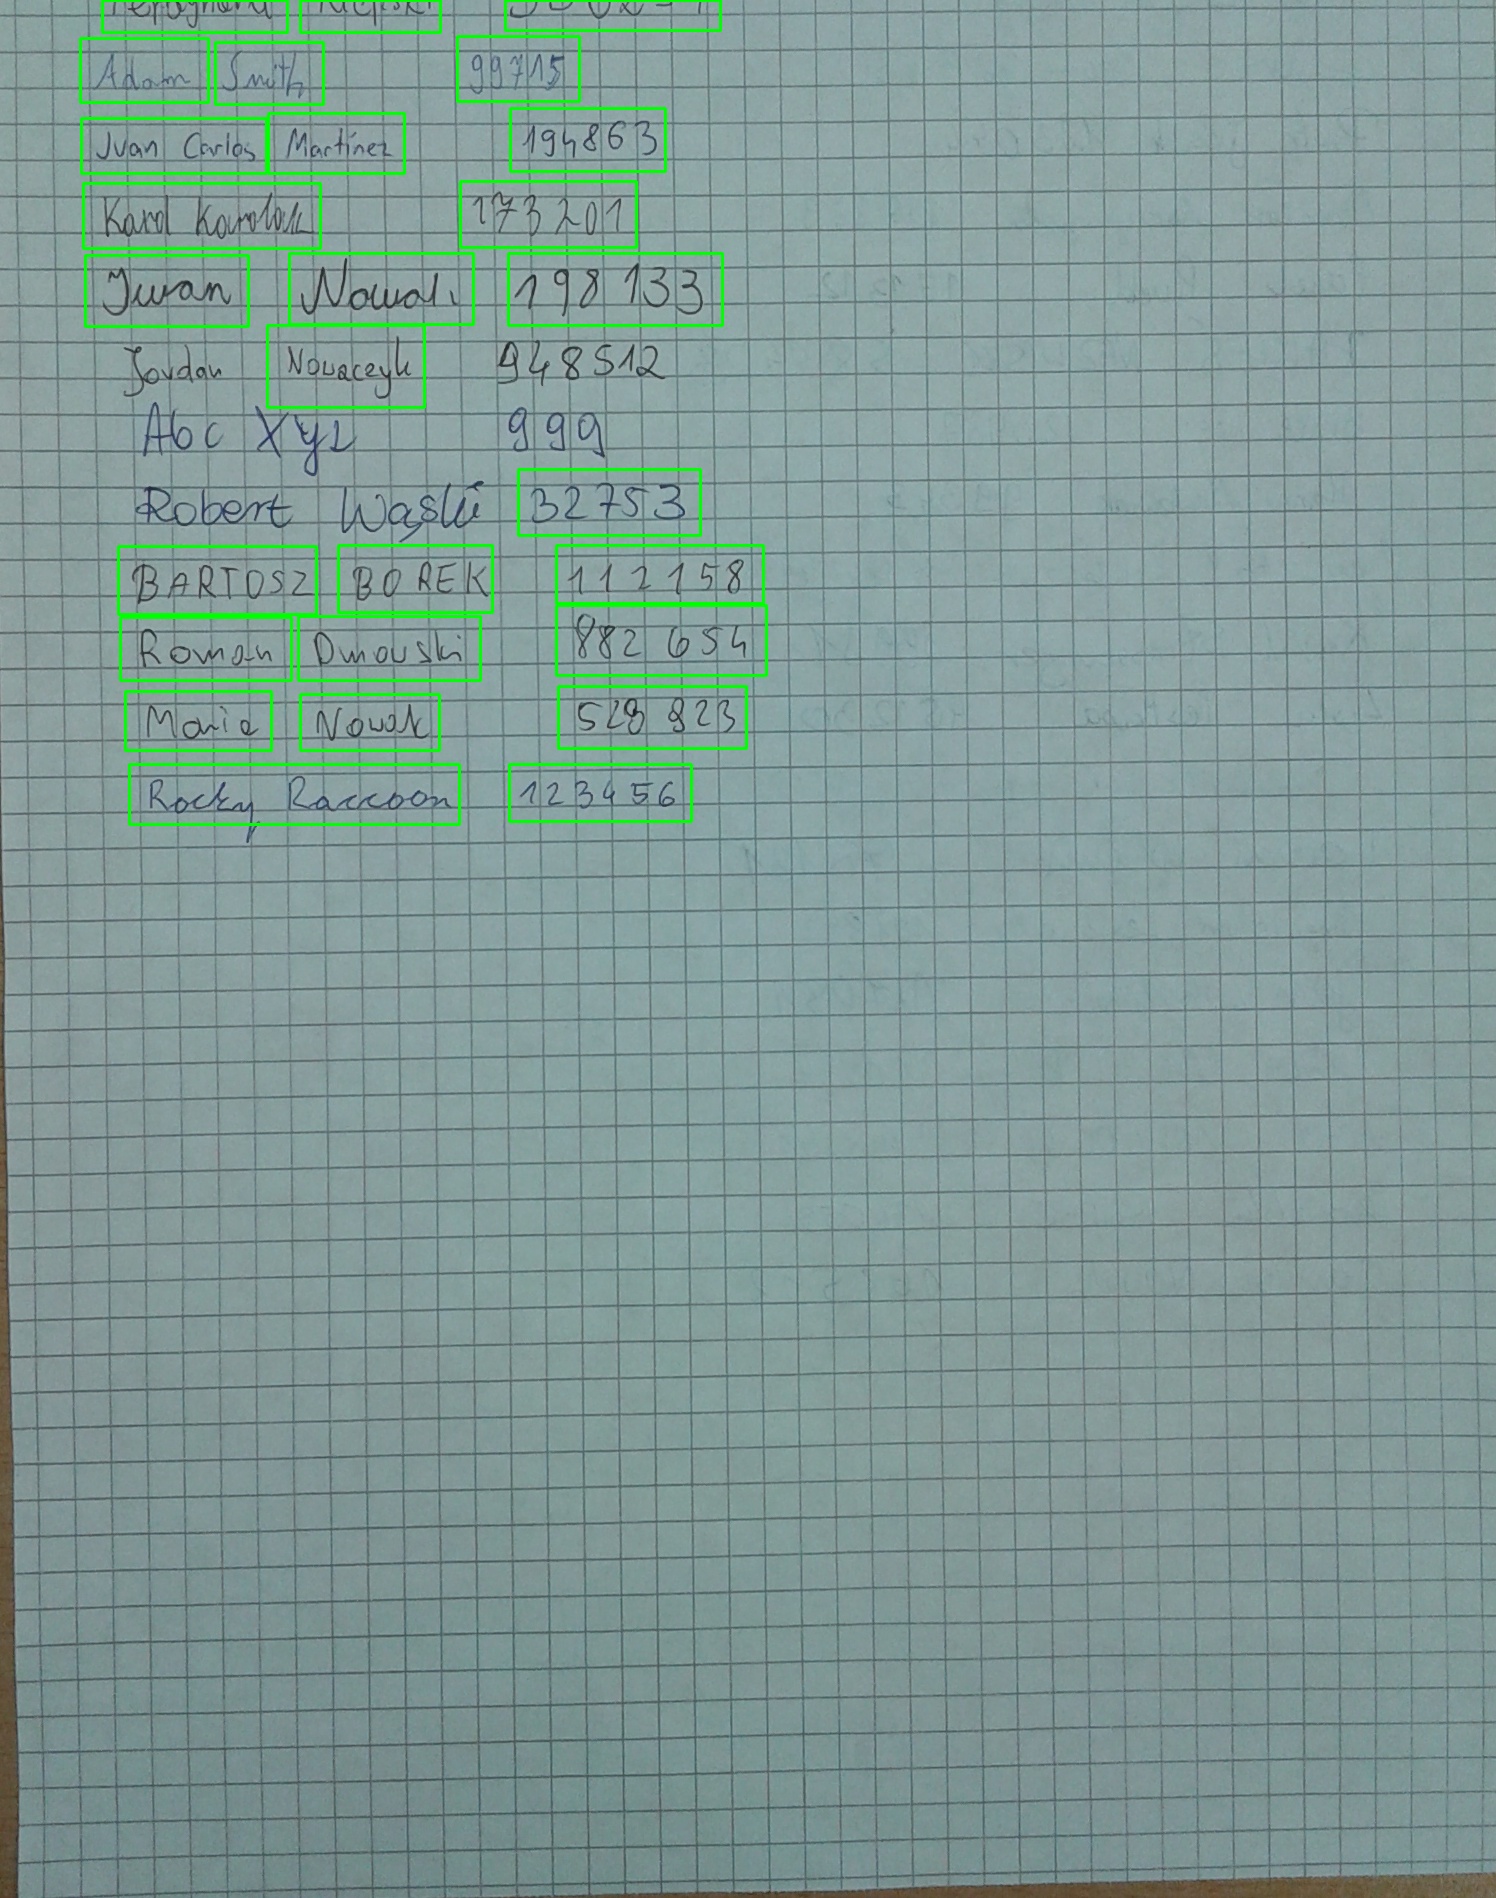 Adam Smith 99715
Juan Carlos Martinez 194863
Karol Karolak 173201
Iwan Nowak 198 133
Jordan Nowaczyk 948512
Abc Xyz 999
Robert Wąski 32753
BARTOSZ BOREK 112158
Roman Dmowski 882 654
Maria Nowak 528 823
Rocky Raccoon 123456